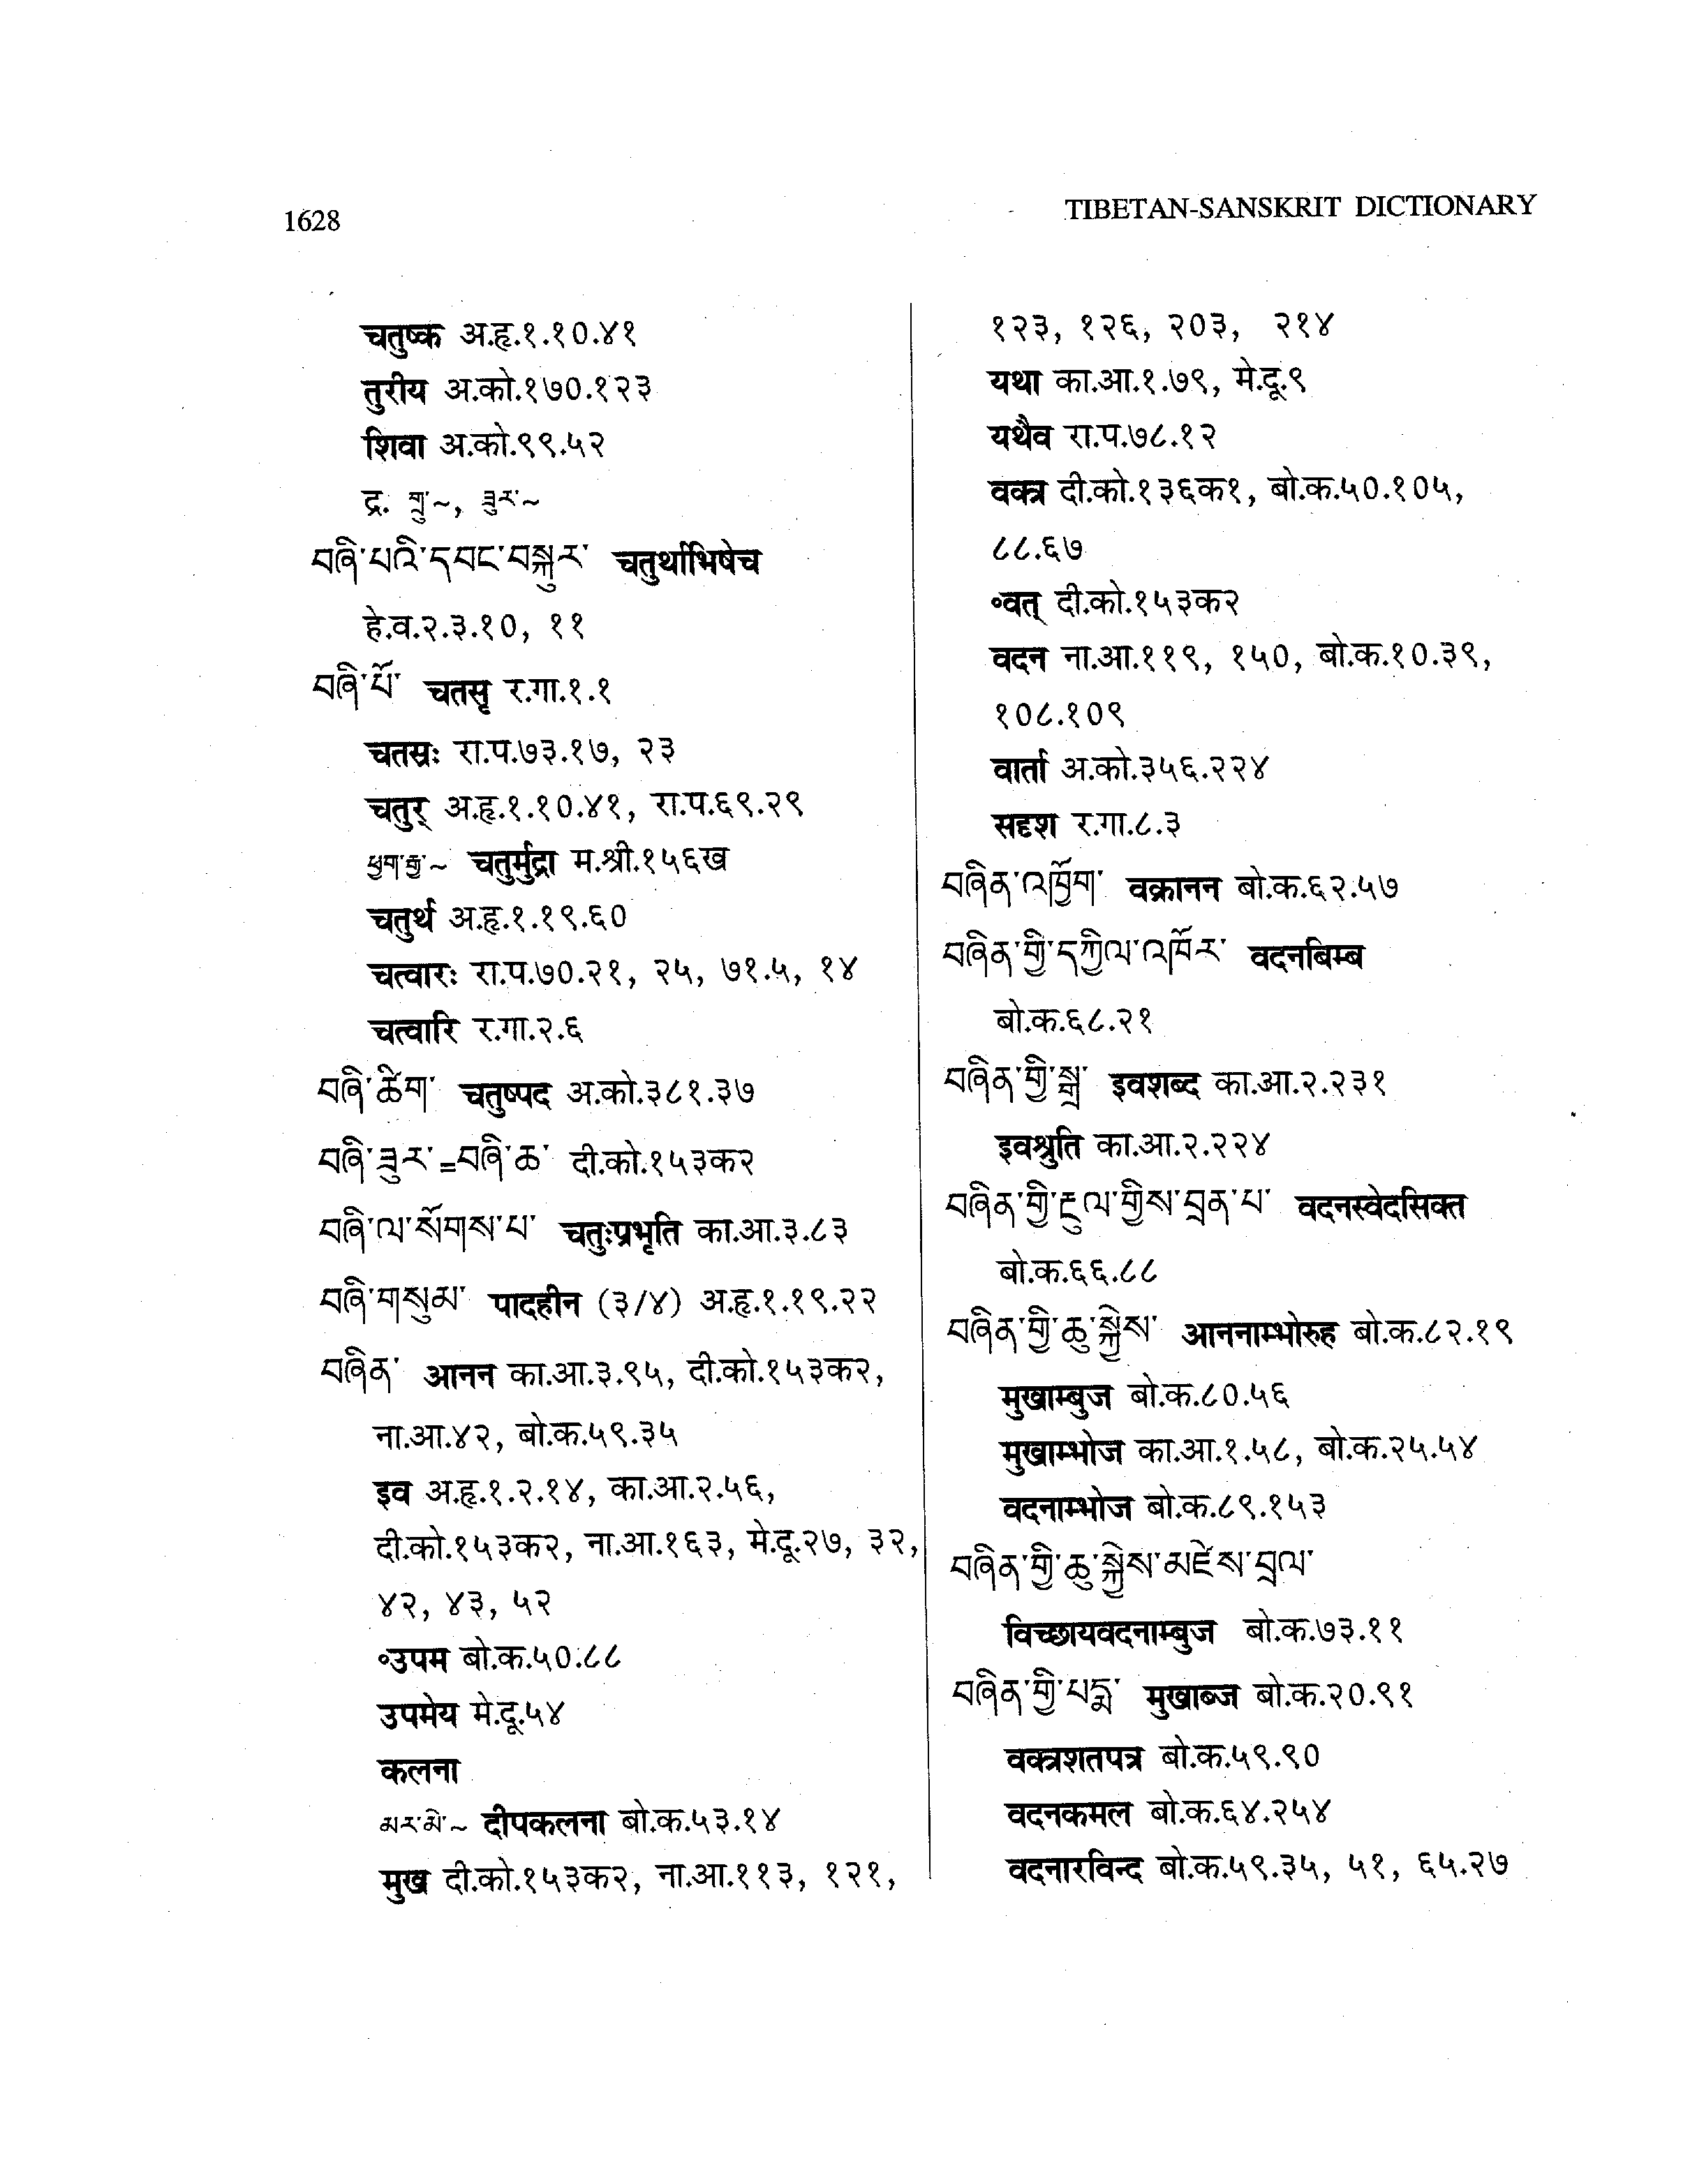 1628
TIBETAN-SANSKRIT DICTIONARY
चतुष्क अ.हृ.१.१०.४१
तुरीय अ.को.१७०.१२३
शिवा अ.को.९९.५२
द्र. གྲུ་~, ཟུར་~
བཞི་པའི་དབང་བསྐུར་ चतुर्थाभिषेच
हे.व.२.३.१०, ११
བཞི་པོ་ चतसृ र.गा.१.१
चतस्रः रा.प.७३.१७, २३
चतुर् अ.हृ.१.१०.४१, रा.प.६९.२९
ཕྱག་རྒྱ་~ चतुर्मुद्रा म.श्री.१५६ख
चतुर्थ अ.हृ.१.१९.६०
चत्वारः रा.प.७०.२१, २५, ७१.५, १४
चत्वारि र.गा.२.६
བཞི་ཚིག་ चतुष्पद अ.को.३८१.३७
བཞི་ཟུར་=བཞི་ཆ་ दी.को.१५३क२
བཞི་ལ་སོགས་པ་ चतुःप्रभृति का.आ.३.८३
བཞི་གསུམ་ पादहीन (३/४) अ.हृ.१.१९.२२
བཞིན་ आनन का.आ.३.९५, दी.को.१५३क२,
ना.आ.४२, बो.क.५९.३५
इव अ.हृ.१.२.१४, का.आ.२.५६,
दी.को.१५३क२, ना.आ.१६३, मे.दू.२७, ३२,
४२, ४३, ५२
॰उपम बो.क.५०.८८
उपमेय मे.दू.५४
कलना
མར་མེ་~ दीपकलना बो.क.५३.१४
मुख दी.को.१५३क२, ना.आ.११३, १२१,
१२३, १२६, २०३, २१४
यथा का.आ.१.७९, मे.दू.९
यथैव रा.प.७८.१२
वक्त्र दी.को.१३६क१, बो.क.५०.१०५,
८८.६७
॰वत् दी.को.१५३क२
वदन ना.आ.११९, १५०, बो.क.१०.३९,
१०८.१०९
वार्ता अ.को.३५६.२२४
सदृश र.गा.८.३
བཞིན་འཁྱོག་ वक्रानन बो.क.६२.५७
བཞིན་གྱི་དཀྱིལ་འཁོར་ वदनबिम्ब
बो.क.६८.२१
བཞིན་གྱི་སྒྲ་ इवशब्द का.आ.२.२३१
इवश्रुति का.आ.२.२२४
བཞིན་གྱི་རྔུལ་གྱིས་བྲན་པ་ वदनस्वेदसिक्त
बो.क.६६.८८
བཞིན་གྱི་ཆུ་སྐྱེས་ आननाम्भोरुह बो.क.८२.१९
मुखाम्बुज बो.क.८०.५६
मुखाम्भोज का.आ.१.५८, बो.क.२५.५४
वदनाम्भोज बो.क.८९.१५३
བཞིན་གྱི་ཆུ་སྐྱེས་མཛེས་བྲལ་
विच्छायवदनाम्बुज बो.क.७३.११
བཞིན་གྱི་པདྨ་ मुखाब्ज बो.क.२०.९१
वक्त्रशतपत्र बो.क.५९.९०
वदनकमल बो.क.६४.२५४
वदनारविन्द बो.क.५९.३५, ५१, ६५.२७